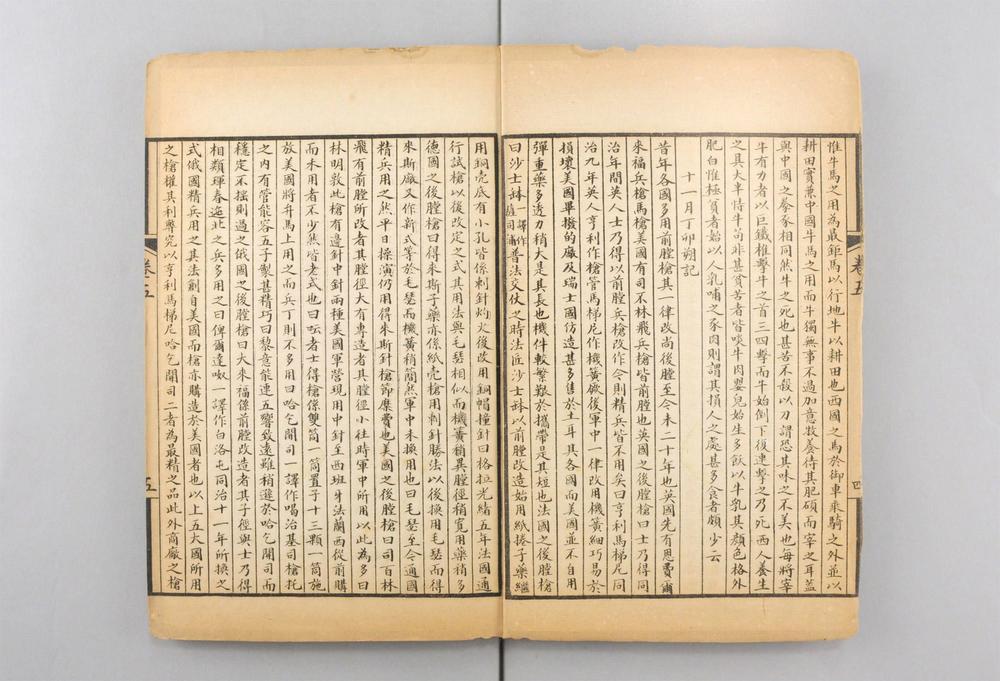 惟牛馬之用為最鉅馬以行地牛以耕田也西國之馬於御車乘騎之外並以
耕田實兼中國牛馬之用而牛獨無事不過加意牧養待其肥碩而宰之耳蓋
與中國之豢豕相同然牛之死也甚苦不殺以刀謂恐其味之不美也每將宰
牛有力者以巨鐵椎擊牛之首三四擊而牛始倒下復連擊之乃死西人養生
之具大半恃牛苟非甚貧苦者皆啖牛肉嬰兒始生多飲以牛乳其顏色格外
肥白惟極貧者始以人乳哺之豕肉則謂其損人之處甚多食者頗少云
十一月丁卯朔記
昔年各國多用前膛槍其一律改尚後膛至今未二十年也英國先有恩費爾
來福兵槍馬槍美國有司不林飛兵槍皆前膛也英國之後膛槍曰士乃得同
治年間英人士乃得以前膛兵槍改作今則精兵皆不用矣曰亨利馬梯尼同
治九年英人亨利作槍管馬梯尼作機簧厥後軍中一律改用機簧細巧易於
損壞美國畢撥的廠及瑞士國仿造甚多售於土耳其各國而美國並不自用
彈重藥多透刀稍大是其長也機件較繁艱於攜帶是其短也法國之後膛槍
曰沙士缽一譯作薩司浦普法交仗之時法匠沙士缽以前膛改造始用紙捲子藥繼
用銅壳底有小孔皆係刺針灼火後改用銅帽撞針曰格拉光緒五年法國通
行試槍以後改定之式其用法與毛瑟相似而機簧稍異膛徑稍寬用藥稍多
德國之後膛槍曰得來斯子藥亦係紙壳槍用刺針勝法以後換用毛瑟而得
來斯廠又作新式等於毛瑟而機簧稍簡然軍中未換用也曰毛瑟至今通國
精兵用之然平日操演仍用得來斯針槍節糜費也美國之後膛槍曰司百林
飛有前膛所改者其膛徑大有專造者其膛徑小往時軍中所用以此為多曰
林明敦此槍有邊針中針兩種美國軍營現用中針至西班牙法蘭西從前購
而未用者不少然皆老式也曰呍者士得槍係雙筒一筒置子十三顆一筒施
放美國將弁馬上用之而兵丁則不多用曰哈乞開司一譯作喝治基司槍托
之內有管能容五子製甚精巧曰黎意能連五響致遠雖稍遜於哈乞開司而
穩定不搖則過之俄國之後膛槍曰大來福係前膛改造者其子徑與士乃得
相類琿春迤北之兵多用之曰俾爾達呶一譯作白洛屯同治十一年所換之
式俄國精兵用之其法創自美國而槍亦購造於美國者也以上五大國所用
之槍權其利弊究以亨利馬梯尼哈乞開司二者為最精之品此外商廠之槍
卷五
四
卷五
五